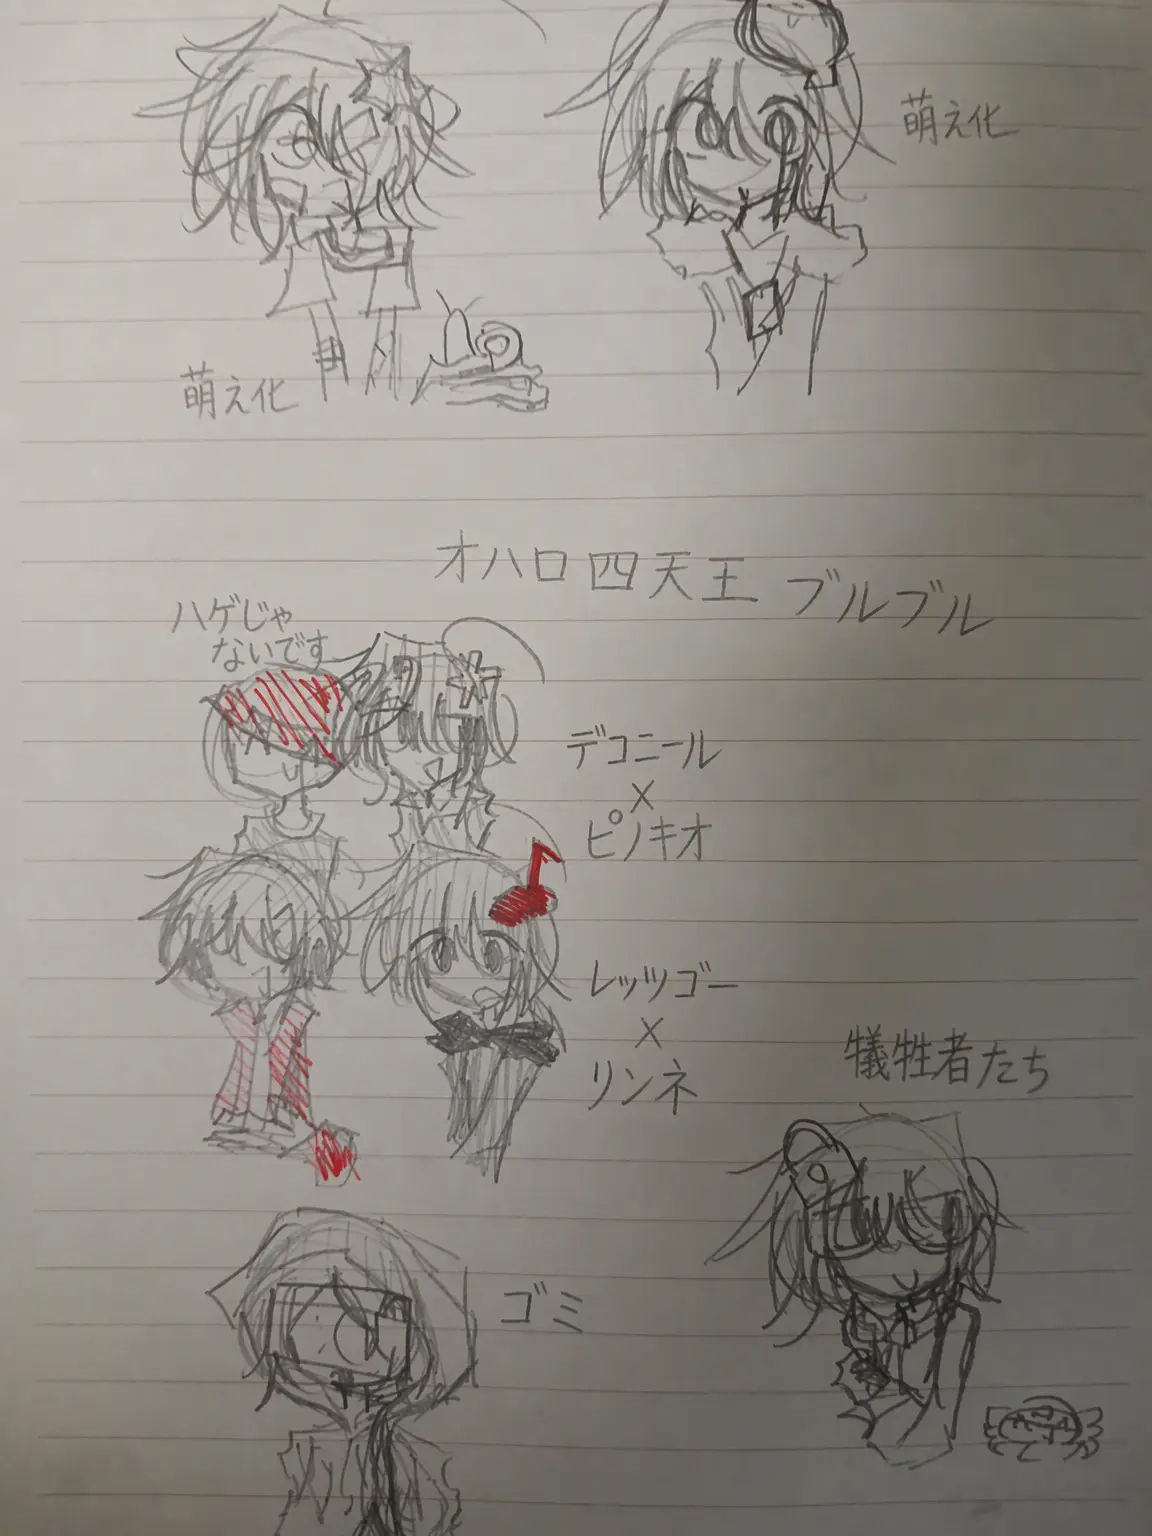 萌え化
萌え化
オハロ四天王 ブルブル
ハゲじゃ
ないです
デコニール
×
ピノキオ
レッツゴー
×
リンネ
犠牲者たち
ゴミ